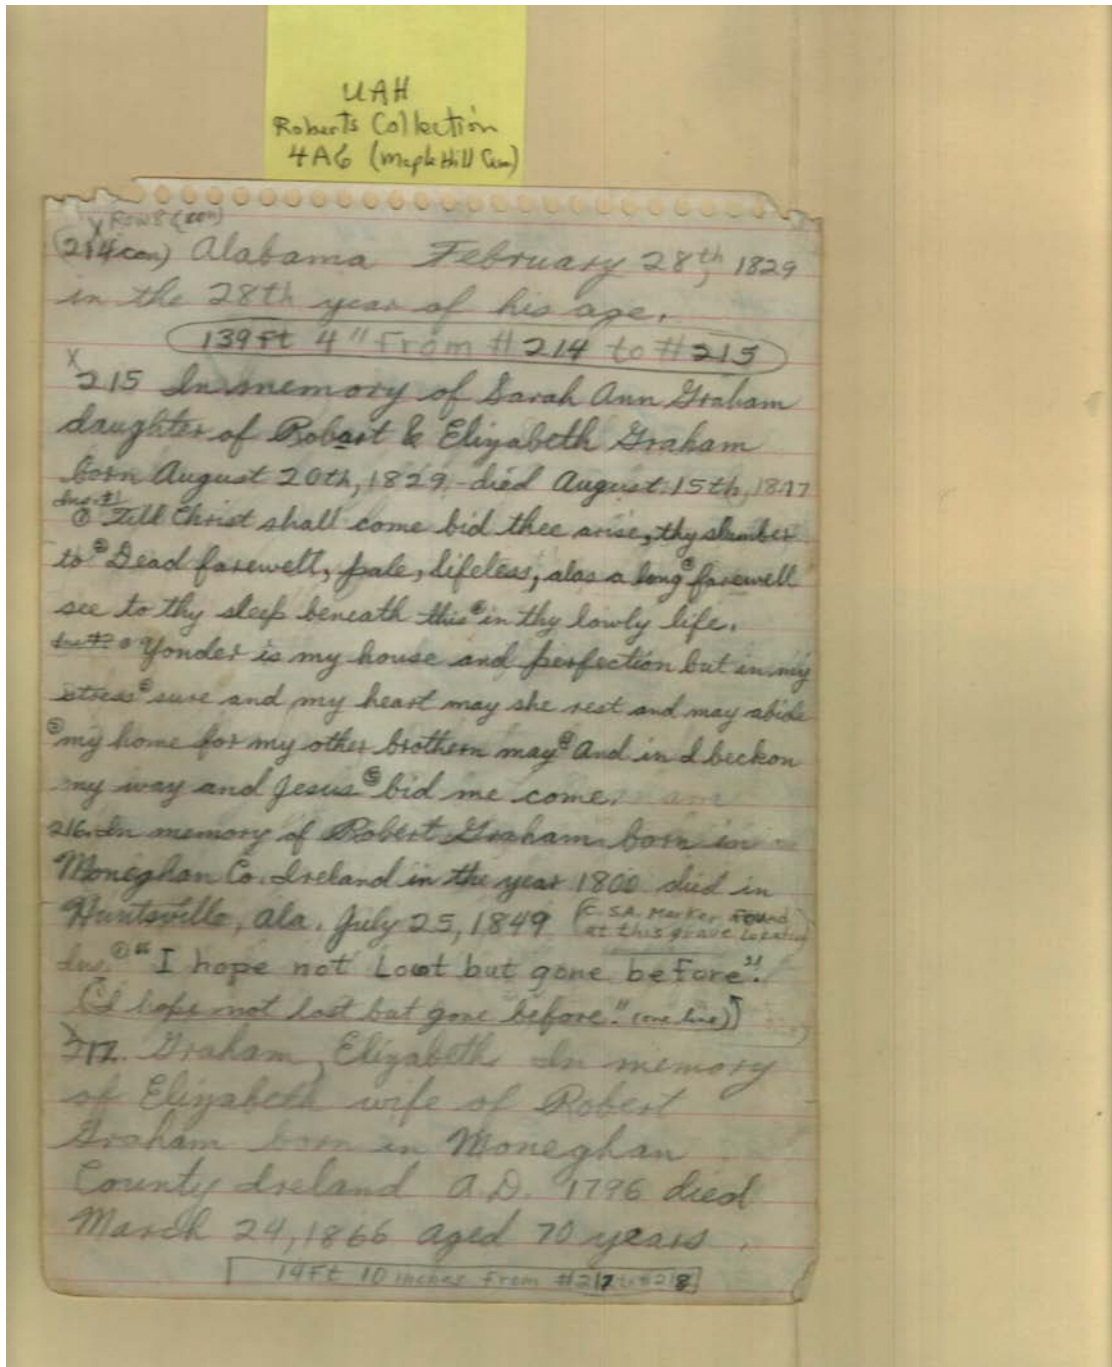 UAH
Roberts Collection
4A6 (Maple Hill Cem)
X ROW 8 (con)
(214 con) Alabama February 28th, 1829
in the 28th year of his age.
139 Ft 4" From #214 to #215
X
215 In memory of Sarah Ann Graham
daughter of Robart & Elizabeth Graham
born August 20th, 1829 - died August 15th, 1847
Ins. #1
① Till Christ shall come bid thee arise, thy slumber
to ② Dead farewell, pale, lifeless, alas a long farewell
see to thy sleep beneath this in thy lowly life.
Ins #2 Yonder is my house and perfection but in my
stress ② sure and my heart may she rest and may abide
③ my home for my other brothern may ④ And in I beckon
my way and Jesus ⑤ bid me come.
216. In memory of Robert Graham born in
Moneghan Co. Ireland in the year 1800 died in
Huntsville, Ala. July 25, 1849 (C.S.A. Marker Found
at this grave location)
Ins. ① "I hope not Lost but gone before".
(I hope not lost but gone before." (one line))
217. Graham, Elizabeth In memory
of Elizabeth wife of Robert
Graham born in Moneghan
County Ireland A.D. 1796 died
March 24, 1866 aged 70 years.
19 Ft 10 inches From #217 to #218